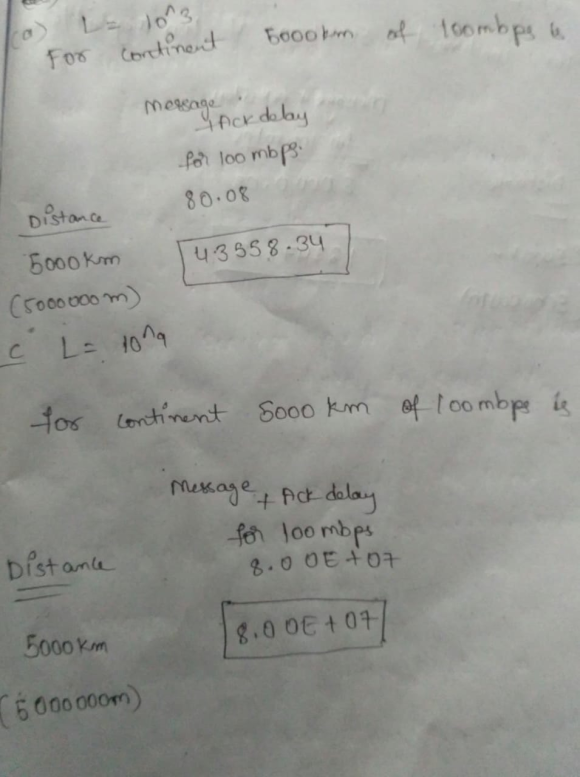 (a) L = 10^3
For continent 5000km of 100mbps is
Message
+ Ack delay
for 100 mbps.
80.08
Distance
5000km
43358.34
(5000000m)
c L = 10^9
for continent 5000 km of 100mbps is
Message + Ack delay
for 100 mbps
8.00E+07
Distance
5000km
8.00E+07
(5000000m)